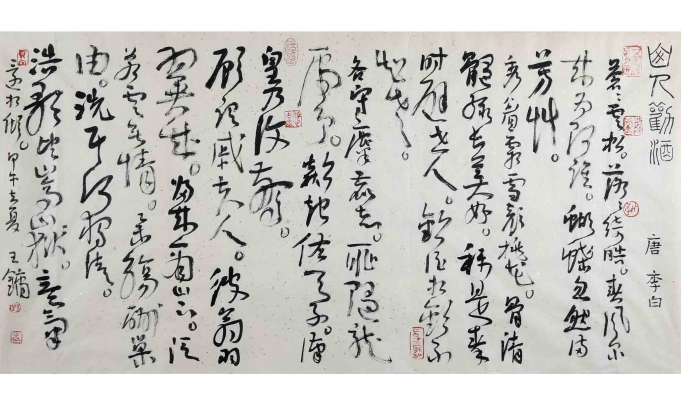 山人勸酒
唐 李白
蒼々雲松。落々綺皓。春風尔
来為阿誰。蝴蝶忽然滿
芳艸。
秀眉霜雪顏桃花。骨清
髓綠長美好。稱是秦
時避世人。勸酒相歡不
知老。
各守麋鹿志。耻隨龍
虎争。欻起佐太子。漢
皇乃復驚。
顧謂戚夫人。彼翁羽
翼成。歸来商山下。泛
若雲無情。舉觴酹巢
由。洗耳何獨清。
浩歌望嵩嶽。意氣
還相傾。甲午立夏 王鏞